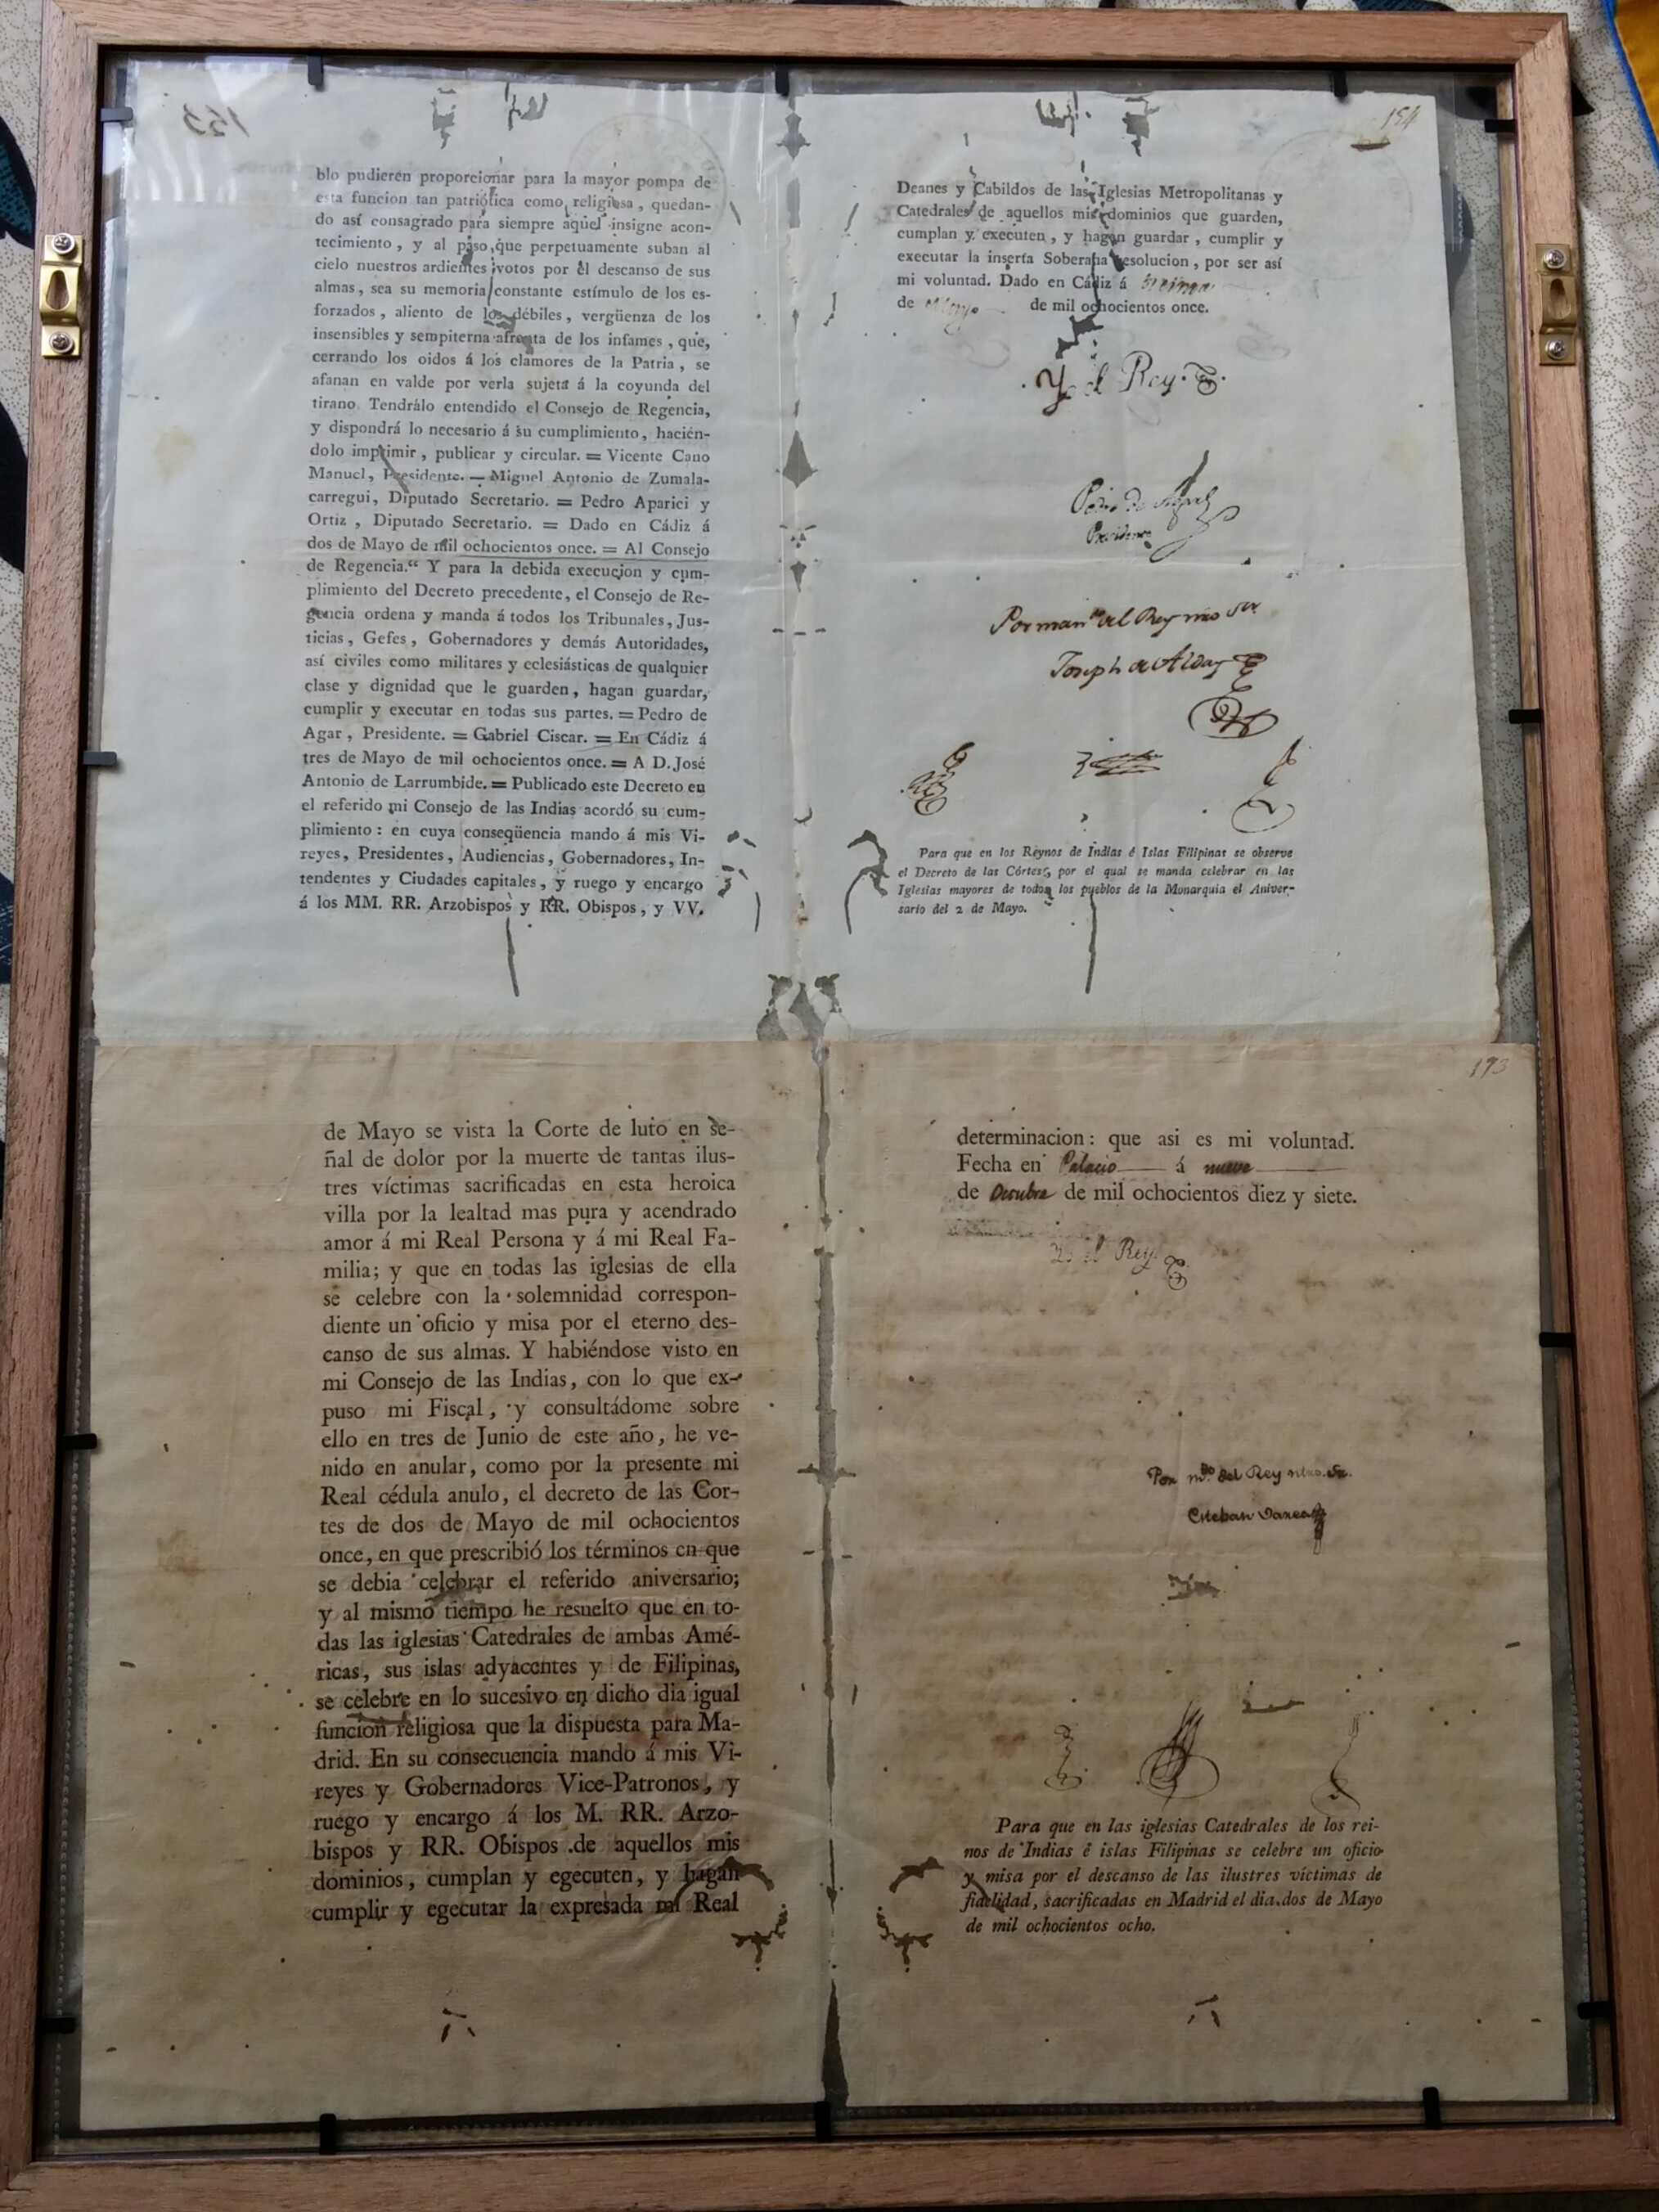 153
blo pudieren proporcionar para la mayor pompa de
esta funcion tan patriótica como religiosa, quedan-
do así consagrado para siempre aquel insigne acon-
tecimiento, y al paso que perpetuamente suban al
cielo nuestros ardientes votos por el descanso de sus
almas, sea su memoria constante estímulo de los es-
forzados, aliento de los débiles, vergüenza de los
insensibles y sempiterna afrenta de los infames, que,
cerrando los oidos á los clamores de la Patria, se
afanan en valde por verla sujeta á la coyunda del
tirano. Tendrálo entendido el Consejo de Regencia,
y dispondrá lo necesario á su cumplimiento, hacién-
dolo imprimir, publicar y circular. = Vicente Cano
Manuel, Presidente. = Miguel Antonio de Zumala-
carregui, Diputado Secretario. = Pedro Aparici y
Ortiz, Diputado Secretario. = Dado en Cádiz á
dos de Mayo de mil ochocientos once. = Al Consejo
de Regencia.“ Y para la debida execucion y cum-
plimiento del Decreto precedente, el Consejo de Re-
gencia ordena y manda á todos los Tribunales, Jus-
ticias, Gefes, Gobernadores y demás Autoridades,
así civiles como militares y eclesiásticas de qualquier
clase y dignidad que le guarden, hagan guardar,
cumplir y executar en todas sus partes. = Pedro de
Agar, Presidente. = Gabriel Ciscar. = En Cádiz á
tres de Mayo de mil ochocientos once. = A D. José
Antonio de Larrumbide. = Publicado este Decreto en
el referido mi Consejo de las Indias acordó su cum-
plimiento: en cuya conseqüencia mando á mis Vi-
reyes, Presidentes, Audiencias, Gobernadores, In-
tendentes y Ciudades capitales, y ruego y encargo
á los MM. RR. Arzobispos y RR. Obispos, y VV.
154
Deanes y Cabildos de las Iglesias Metropolitanas y
Catedrales de aquellos mis dominios que guarden,
cumplan y executen, y hagan guardar, cumplir y
executar la inserta Soberana resolucion, por ser así
mi voluntad. Dado en Cádiz á
de Mayo de mil ochocientos once.
Yo el Rey.
Pedro de Agar
Presidente
Por man.do del Rey nro Sor
Joseph de Alday
Para que en los Reynos de Indias é Islas Filipinas se observe
el Decreto de las Córtes, por el qual se manda celebrar en las
Iglesias mayores de todos los pueblos de la Monarquía el Aniver-
sario del 2 de Mayo.
de Mayo se vista la Corte de luto en se-
ñal de dolor por la muerte de tantas ilus-
tres víctimas sacrificadas en esta heroica
villa por la lealtad mas pura y acendrado
amor á mi Real Persona y á mi Real Fa-
milia; y que en todas las iglesias de ella
se celebre con la solemnidad correspon-
diente un oficio y misa por el eterno des-
canso de sus almas. Y habiéndose visto en
mi Consejo de las Indias, con lo que ex-
puso mi Fiscal, y consultádome sobre
ello en tres de Junio de este año, he ve-
nido en anular, como por la presente mi
Real cédula anulo, el decreto de las Cor-
tes de dos de Mayo de mil ochocientos
once, en que prescribió los términos en que
se debia celebrar el referido aniversario;
y al mismo tiempo he resuelto que en to-
das las iglesias Catedrales de ambas Amé-
ricas, sus islas adyacentes y de Filipinas,
se celebre en lo sucesivo en dicho dia igual
funcion religiosa que la dispuesta para Ma-
drid. En su consecuencia mando á mis Vi-
reyes y Gobernadores Vice-Patronos, y
ruego y encargo á los M. RR. Arzo-
bispos y RR. Obispos de aquellos mis
dominios, cumplan y egecuten, y hagan
cumplir y egecutar la expresada mi Real
193
determinacion: que asi es mi voluntad.
Fecha en Palacio á nueve
de Octubre de mil ochocientos diez y siete.
Yo el Rey.
Por mdo. del Rey ntro. Sr.
Esteban Varea
Para que en las iglesias Catedrales de los rei-
nos de Indias é islas Filipinas se celebre un oficio
y misa por el descanso de las ilustres víctimas de
fidelidad, sacrificadas en Madrid el dia dos de Mayo
de mil ochocientos ocho.